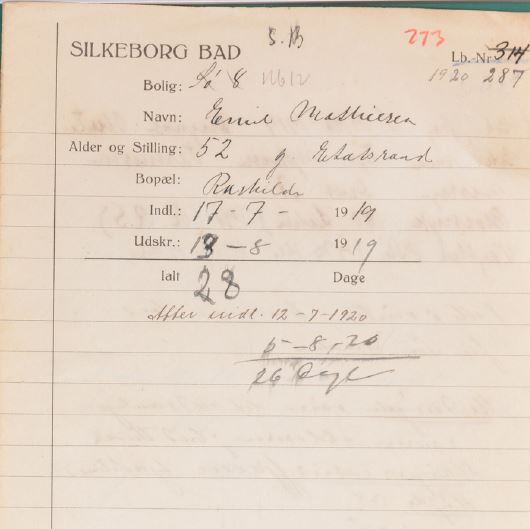 S. B 273
SILKEBORG BAD Lb.-Nr. 314
1920 287
Bolig: Sø 8
Navn: Emil Mathiesen
Alder og Stilling: 52 g. Etatsraad
Bopæl: Roskilde
Indl.: 17-7- 1919
Udskr.: 13-8 1919
Ialt 28 Dage
Atter indl. 12-7-1920
5-8-20
26 Dage